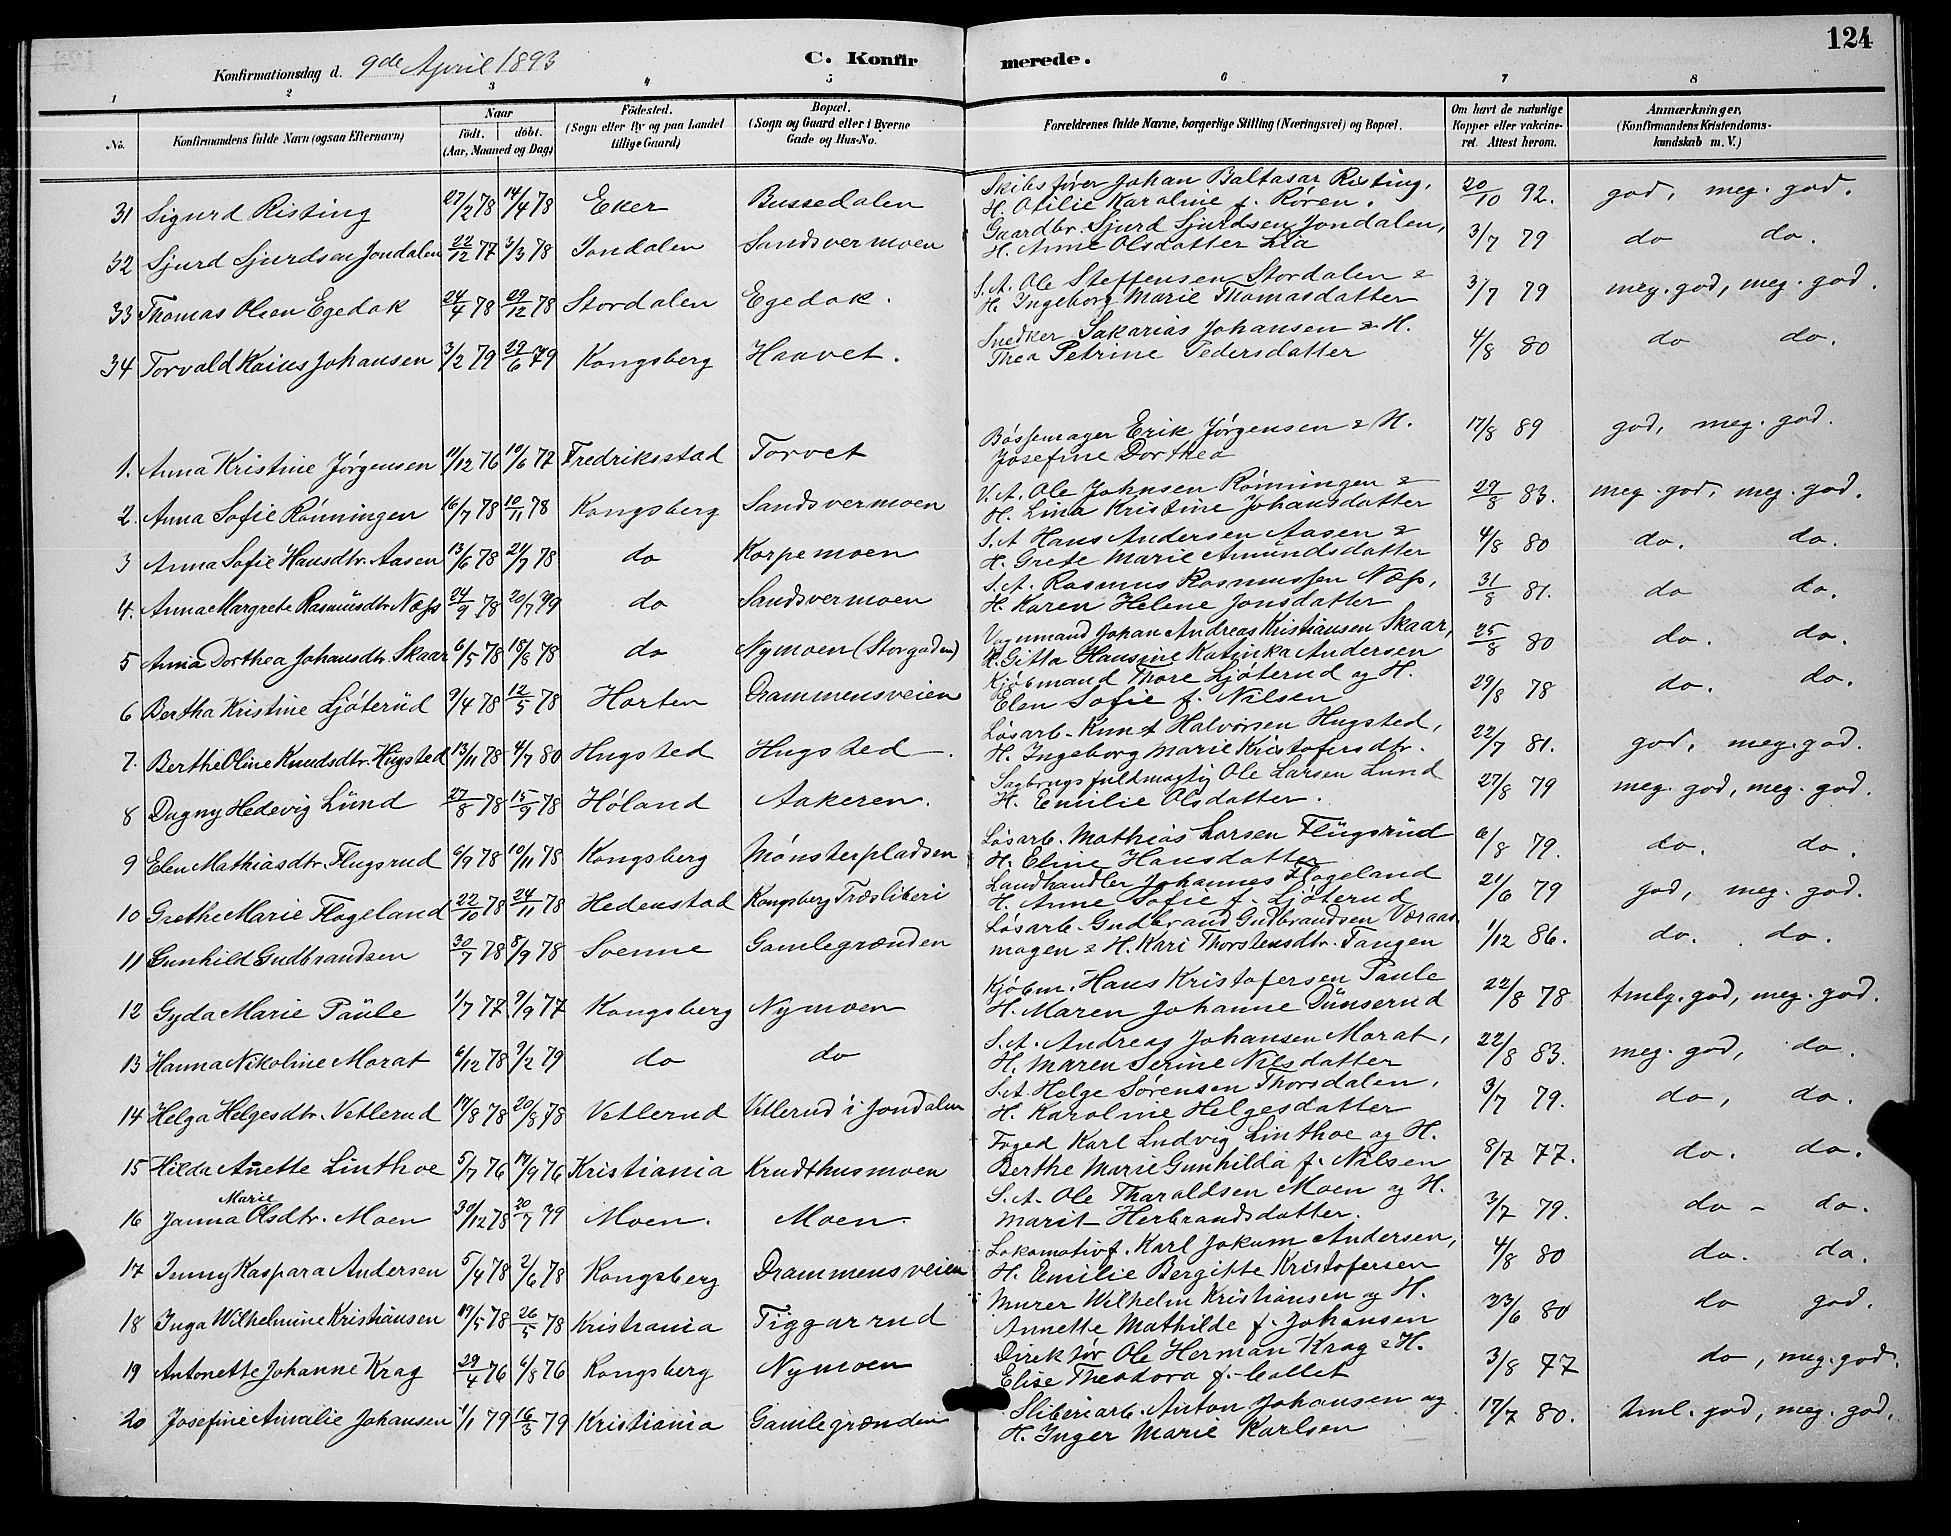 124
Konfirmationsdag d. 9de April 1893
C. Konfirmerede.
1 2 3 4 5 6 7 8
No. Konfirmandens fulde Navn (ogsaa Efternavn) Naar født. døbt. (Aar, Maaned og Dag) Fødested. (Sogn eller By og paa Landet tillige Gaard) Bopæl. (Sogn og Gaard eller i Byerne Gade og Hus-No. Forældrenes fulde Navne, borgerlige Stilling (Næringsvei) og Bopæl. Om havt de naturlige Kopper eller vakcineret. Attest herom. Anmærkninger, (Konfirmandens Kristendomskundskab m. V.)
31 Sigurd Risting 27/2 78 14/4 78 Eker Bussedalen Skibsfører Johan Baltasar Risting, H. Otilie Karoline f. Røren. 20/10 92. god, meg. god.
32 Sjurd Sjurdsen Jondalen 22/12 77 3/3 78 Jondalen Sandsvermoen Gaardbr. Sjurd Sjurdsen Jondalen, H. Anne Olsdatter Lia 3/7 79 do do.
33 Thomas Olsen Egedok 24/4 78 29/12 78 Stordalen Egedok. S. A. Ole Steffensen Stordalen & H. Ingeborg Marie Thomasdatter 3/7 79 meg. god, meg. god.
34 Torvald Kaius Johansen 3/2 79 29/6 79 Kongsberg Haavet. Snedker Sakarias Johansen & H. Thea Petrine Pedersdatter 4/8 80 do do.
1. Anna Kristine Jørgensen 11/12 76 10/6 77 Fredriksstad Torvet Bøssemager Erik Jørgensen & H. Josefine Dorthea 17/8 89 god, meg. god.
2. Anna Sofie Rønningen 16/7 78 10/11 78 Kongsberg Sandsvermoen V. A. Ole Johnsen Rønningen & H. Lina Kristine Johansdatter 29/8 83. meg. god, meg. god.
3 Anna Sofie Hansdtr. Aasen 13/6 78 21/7 78 do Korpemoen S. A Hans Andersen Aasen & H. Grete Marie Amundsdatter 4/8 80 do. do.
4. Anna Margrete Rasmusdtr. Næss 24/9 78 20/7 79 do Sandsvermoen S. A. Rasmus Rasmussen Næss, H. Karen Helene Jonsdatter 31/8 81. do do.
5 Anna Dorthea Johansdtr. Skaar 6/5 78 18/8 78 do Nymoen (Storgaden) Vognmand Johan Andreas Kristiansen Skaar, H. Gitta Hansine Katinka Andersen 25/8 80 do. do.
6 Bertha Kristine Ljøterud 9/4 78 12/5 78 Horten Drammensveien Kjøbmand Thore Ljøterud og H. Elen Sofie f. Nilsen 29/8 78 do. do.
7. Berthe Oline Knudsdtr. Hugsted 13/11 78 4/7 80 Hugsted Hugsted. Løsarb. Knut Halvorsen Hugsted, H. Ingeborg Marie Kristofersdtr. 22/7 81. god, meg. god.
8 Dagny Hedevig Lund 27/8 78 15/9 78 Høland Aakeren. Sagbrugsfuldmægtig Ole Larsen Lund H. Emilie Olsdatter. 27/8 79 meg. god, meg. god.
9 Elen Mathiasdtr. Flugsrud 6/9 78 10/11 78 Kongsberg Mønsterpladsen Løsarb. Mathias Larsen Flugsrud H. Eline Hansdatter 6/8 79. do. do.
10 Grethe Marie Flogeland 22/10 78 24/11 78 Hedenstad Kongsberg Træsliberi Landhandler Johannes Flogeland H. Anne Sofie f. Ljøterud 21/6 79 god, meg. god.
11 Gunhild Gudbrandsen 30/7 78 8/9 78 Svenne Gamlegrænden Løsarb. Gudbrand Gudbrandsen Væraasmogen & H. Kari Thorstensdtr. Tangen 1/12 86. do. do.
12 Gyda Marie Paule 1/7 77 9/9 77 Kongsberg Nymoen Kjøbm. Hans Kristofersen Paule H. Maren Johanne Dunserud 22/8 78 tmlg. god, meg. god.
13 Hanna Nikoline Morat 6/12 78 9/2 79 do do S. A. Andreas Johansen Morat, H. Maren Serine Nilsdatter 22/8 83. meg. god, do.
14 Helga Helgesdtr. Vetlerud 17/8 78 20/8 78 Vetlerud Vetlerud i Jondalen S. A. Helge Sørensen Thorsdalen, H. Karoline Helgesdatter 3/7 79. do, do.
15 Hilda Anette Linthoe 5/7 76 17/9 76 Kristiania Krudthusmoen Foged Karl Ludvig Linthoe og H. Berthe Marie Gunhilda f. Nilsen 8/7 77. do. do.
16 Janna Marie Olsdtr. Moen 30/12 78 20/7 79 Moen. Moen. S. A. Ole Tharaldsen Moen og H. Marit Herbrandsdatter. 3/7 79. do - do.
17 Jenny Kaspara Andersen 5/4 78 2/6 78 Kongsberg Drammensveien Lokomotivf. Karl Jokum Andersen, H. Emilie Bergitte Kristofersen 4/8 80 do. do.
18 Inga Wilhelmine Kristiansen 19/5 78 26/5 78 Kristiania Tiggarrud Murer Wilhelm Kristiansen og H. Annette Mathilde f. Johansen 23/6 80 do god.
19 Antonette Johanne Krag 29/4 76 6/8 76 Kongsberg Nymoen Direktør Ole Herman Krag & H. Elise Theodora f. Collet 3/8 77 do, meg. god.
20 Josefine Amalie Johansen 1/1 79 16/3 79 Kristiania Gamlegrænden Sliberiarb. Anton Johansen og H. Inger Marie Karlsen 17/7 80. tml. god, meg. god.